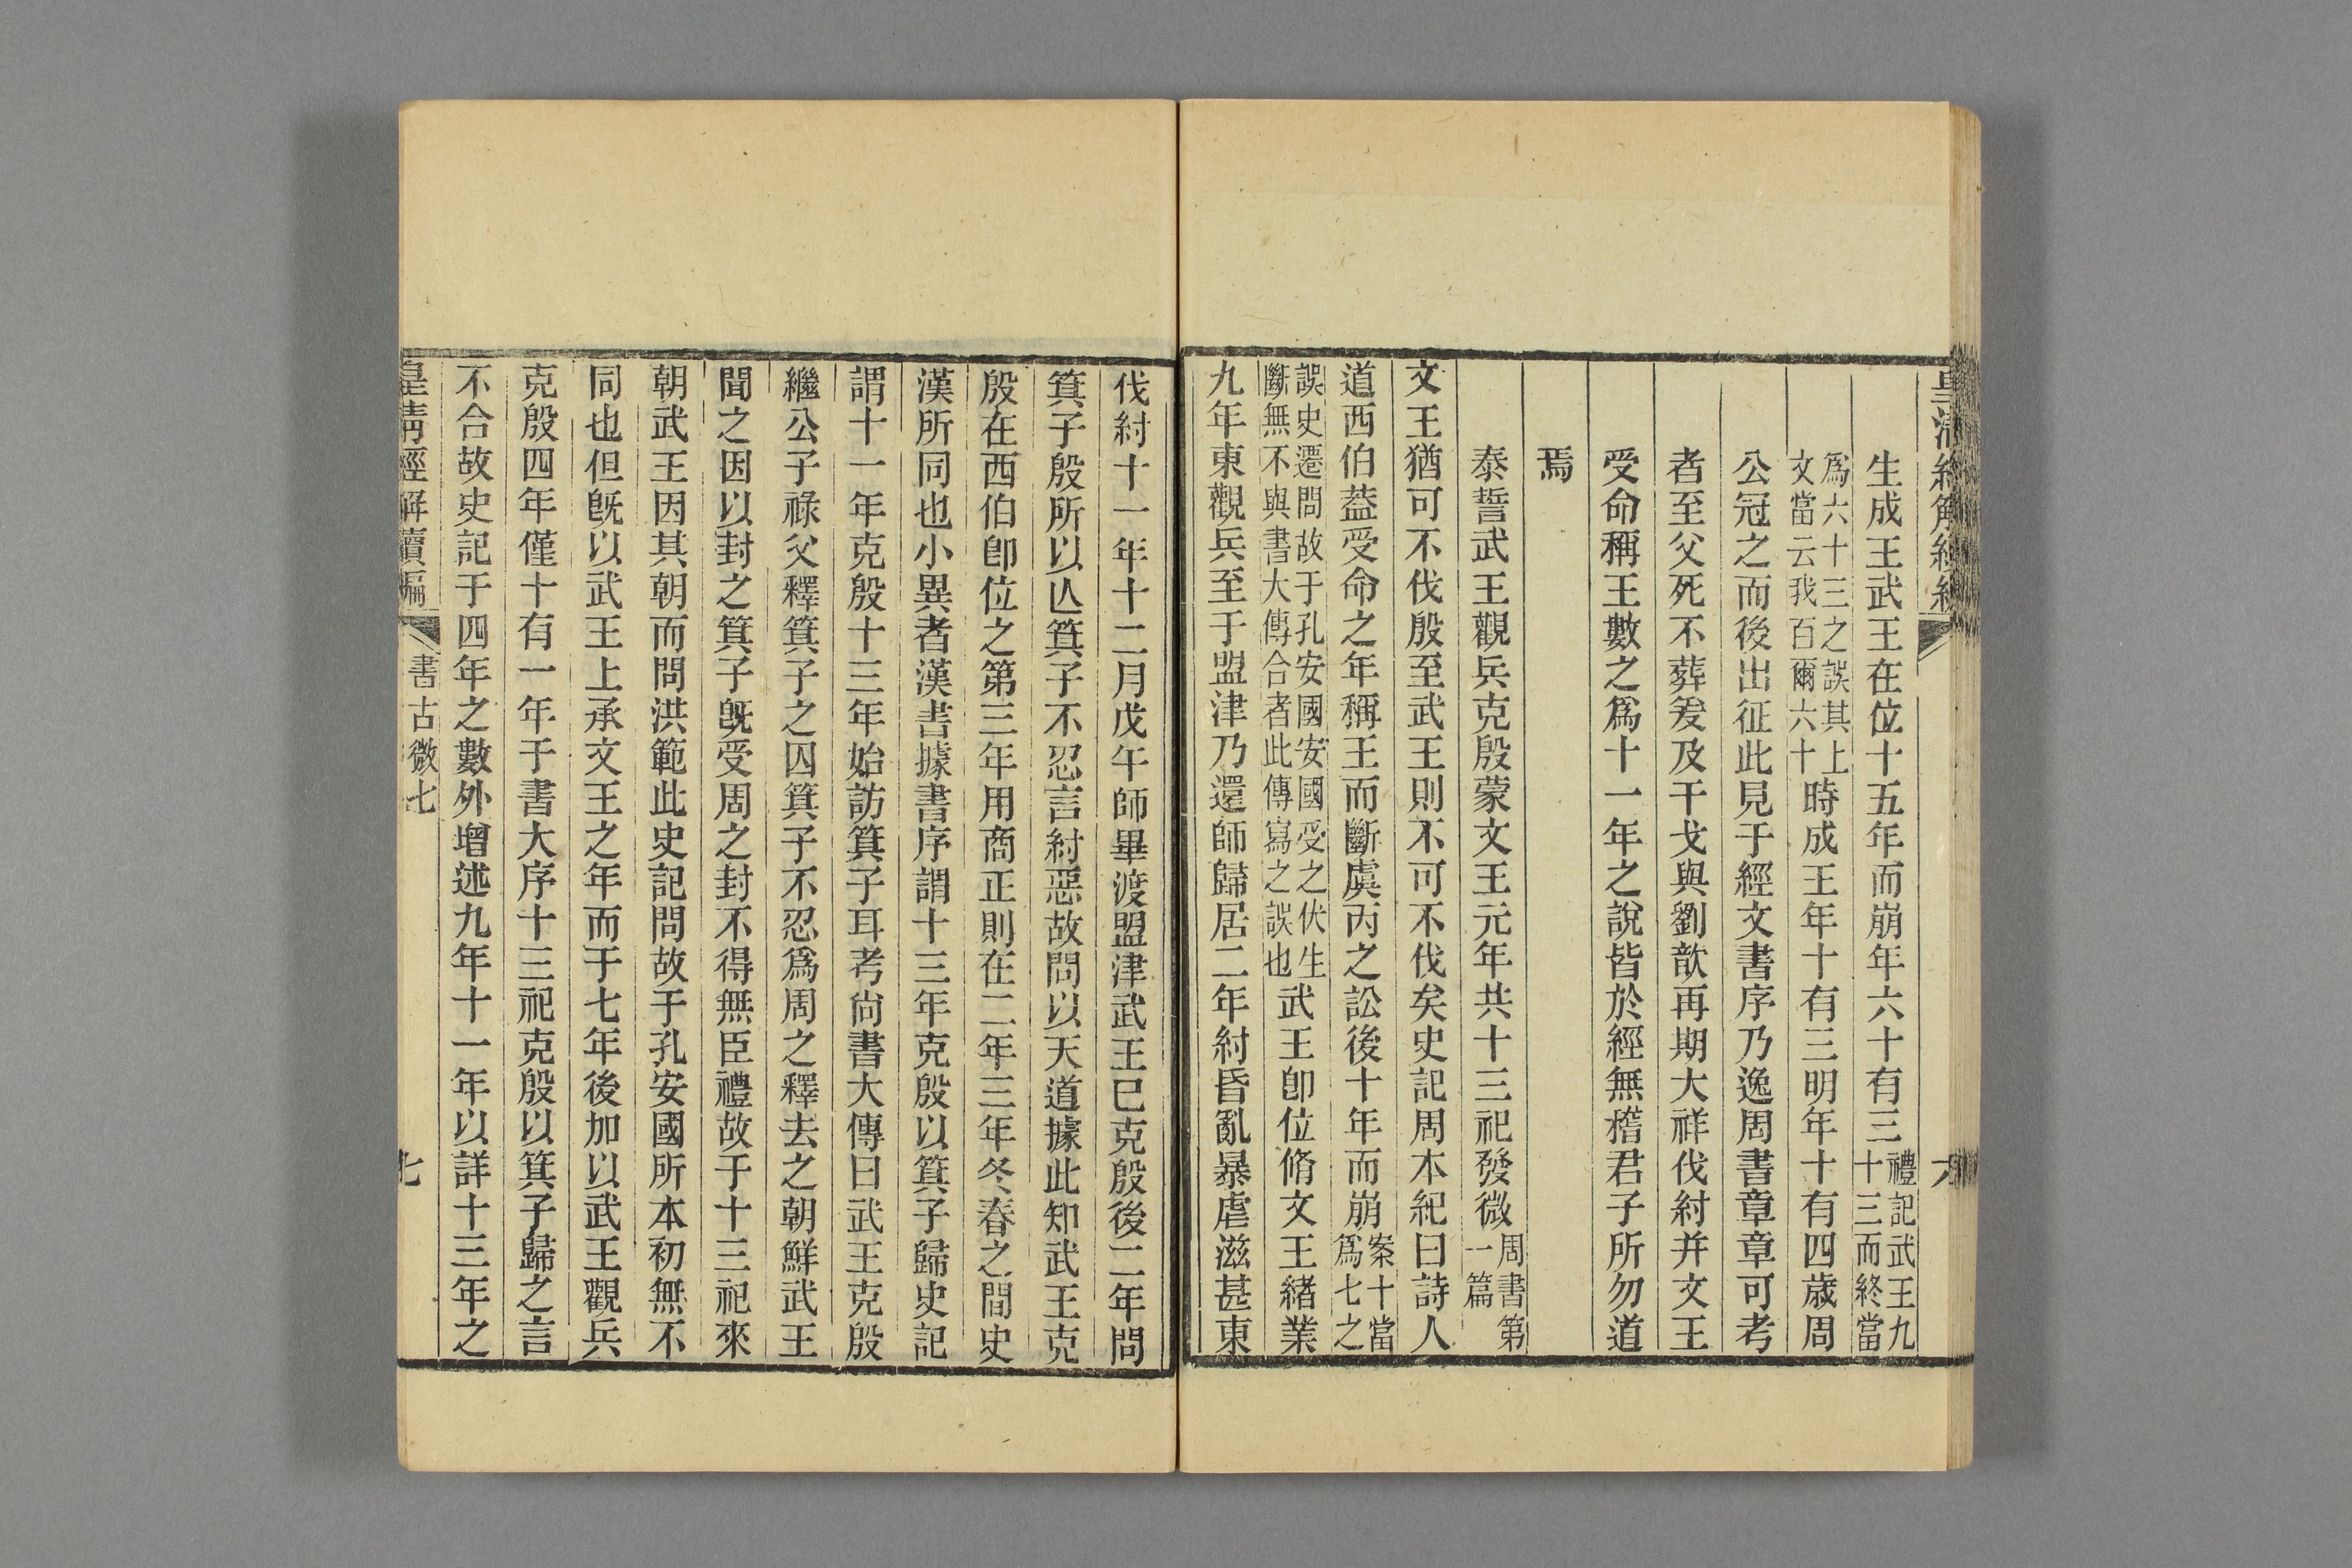 生成王武王在位十五年而崩年六十有三禮記武王九十三而終當
爲六十三之誤其上文當云我百爾六十時成王年十有三明年十有四歲周
公冠之而後出征此見于經文書序乃逸周書章章可考
者至父死不葬爰及干戈與劉歆再期大祥伐紂并文王
受命稱王數之爲十一年之說皆於經無稽君子所勿道
焉
泰誓武王觀兵克殷蒙文王元年共十三祀發微周書第一篇
文王猶可不伐殷至武王則不可不伐矣史記周本紀曰詩人
道西伯蓋受命之年稱王而斷虞芮之訟後十年而崩案十當爲七之
誤史遷問故于孔安國安國受之伏生斷無不與書大傳合者此傳寫之誤也武王卽位脩文王緒業
九年東觀兵至于盟津乃還師歸居二年紂昏亂暴虐滋甚東
伐紂十一年十二月戊午師畢渡盟津武王已克殷後二年問
箕子殷所以亾箕子不忍言紂惡故問以天道據此知武王克
殷在西伯卽位之第三年用商正則在二年三年冬春之間史
漢所同也小異者漢書據書序謂十三年克殷以箕子歸史記
謂十一年克殷十三年始訪箕子耳考尙書大傳曰武王克殷
繼公子祿父釋箕子之囚箕子不忍爲周之釋去之朝鮮武王
聞之因以封之箕子旣受周之封不得無臣禮故于十三祀來
朝武王因其朝而問洪範此史記問故于孔安國所本初無不
同也但旣以武王上承文王之年而于七年後加以武王觀兵
克殷四年僅十有一年于書大序十三祀克殷以箕子歸之言
不合故史記于四年之數外增述九年十一年以詳十三年之
皇淸經解續編
書古微七
七